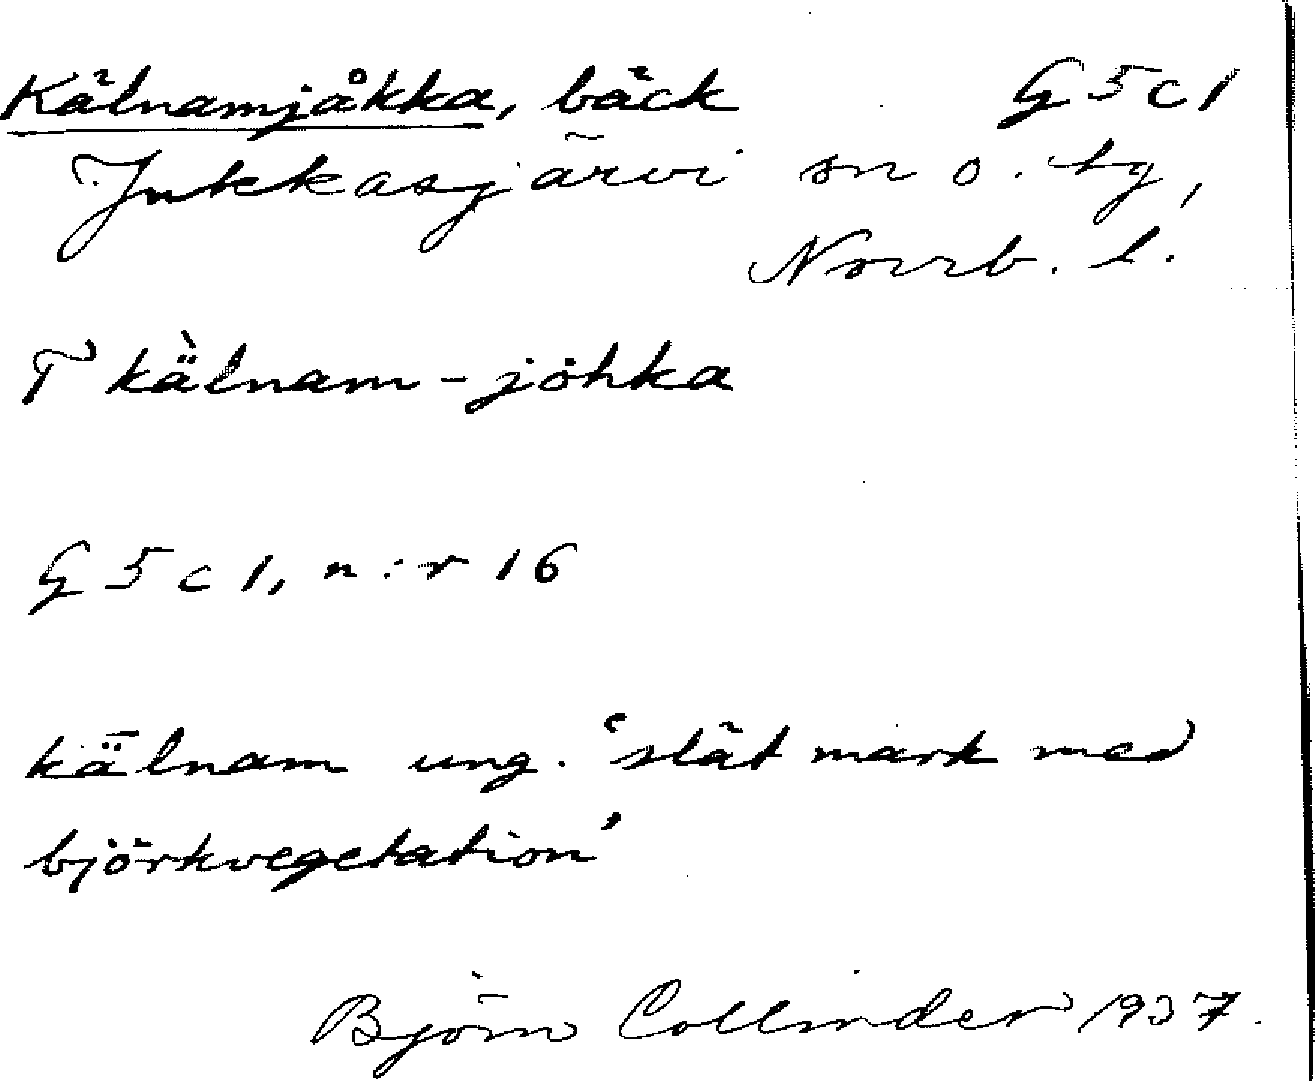 Kälnamjåkka, bäck G5c1
Jukkasjärvi sn o. tg,
Norrb. l.
T kä̀lnam-jȯhka
G5c1, n:r 16
kǟlnam ung. ‘slät mark med
björkvegetation’
Björn Collinder 1937.